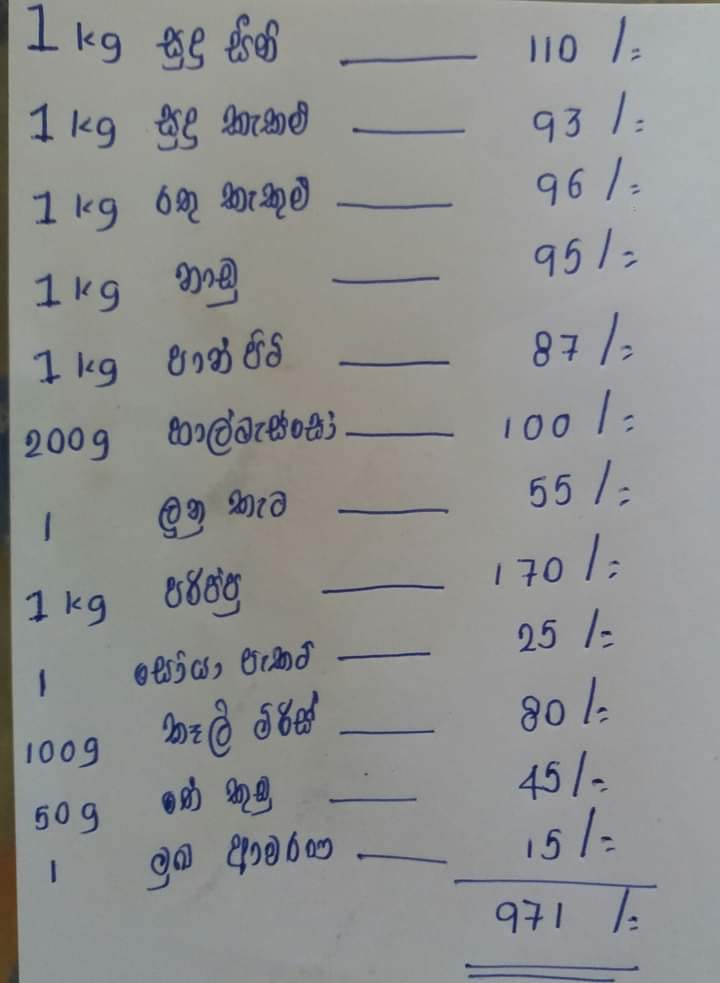 1 kg සුදු සීනි 110 /=
1 kg සුදු කැකුළු 93 /=
1 kg රතු කැකුළු 96 /=
1 kg නාඩු 95 /=
1 kg පාන් පිටි 87 /=
200g හාල්මැස්සෝ 100 /=
1 ලුනු කැට 55 /=
1 kg පරිප්පු 170 /=
1 සෝයා පැකට් 25 /=
100g කෑලි මිරිස් 80 /=
50g තේ කුඩු 45 /=
1 මුඛ ආවරණ 15 /=
971 /=